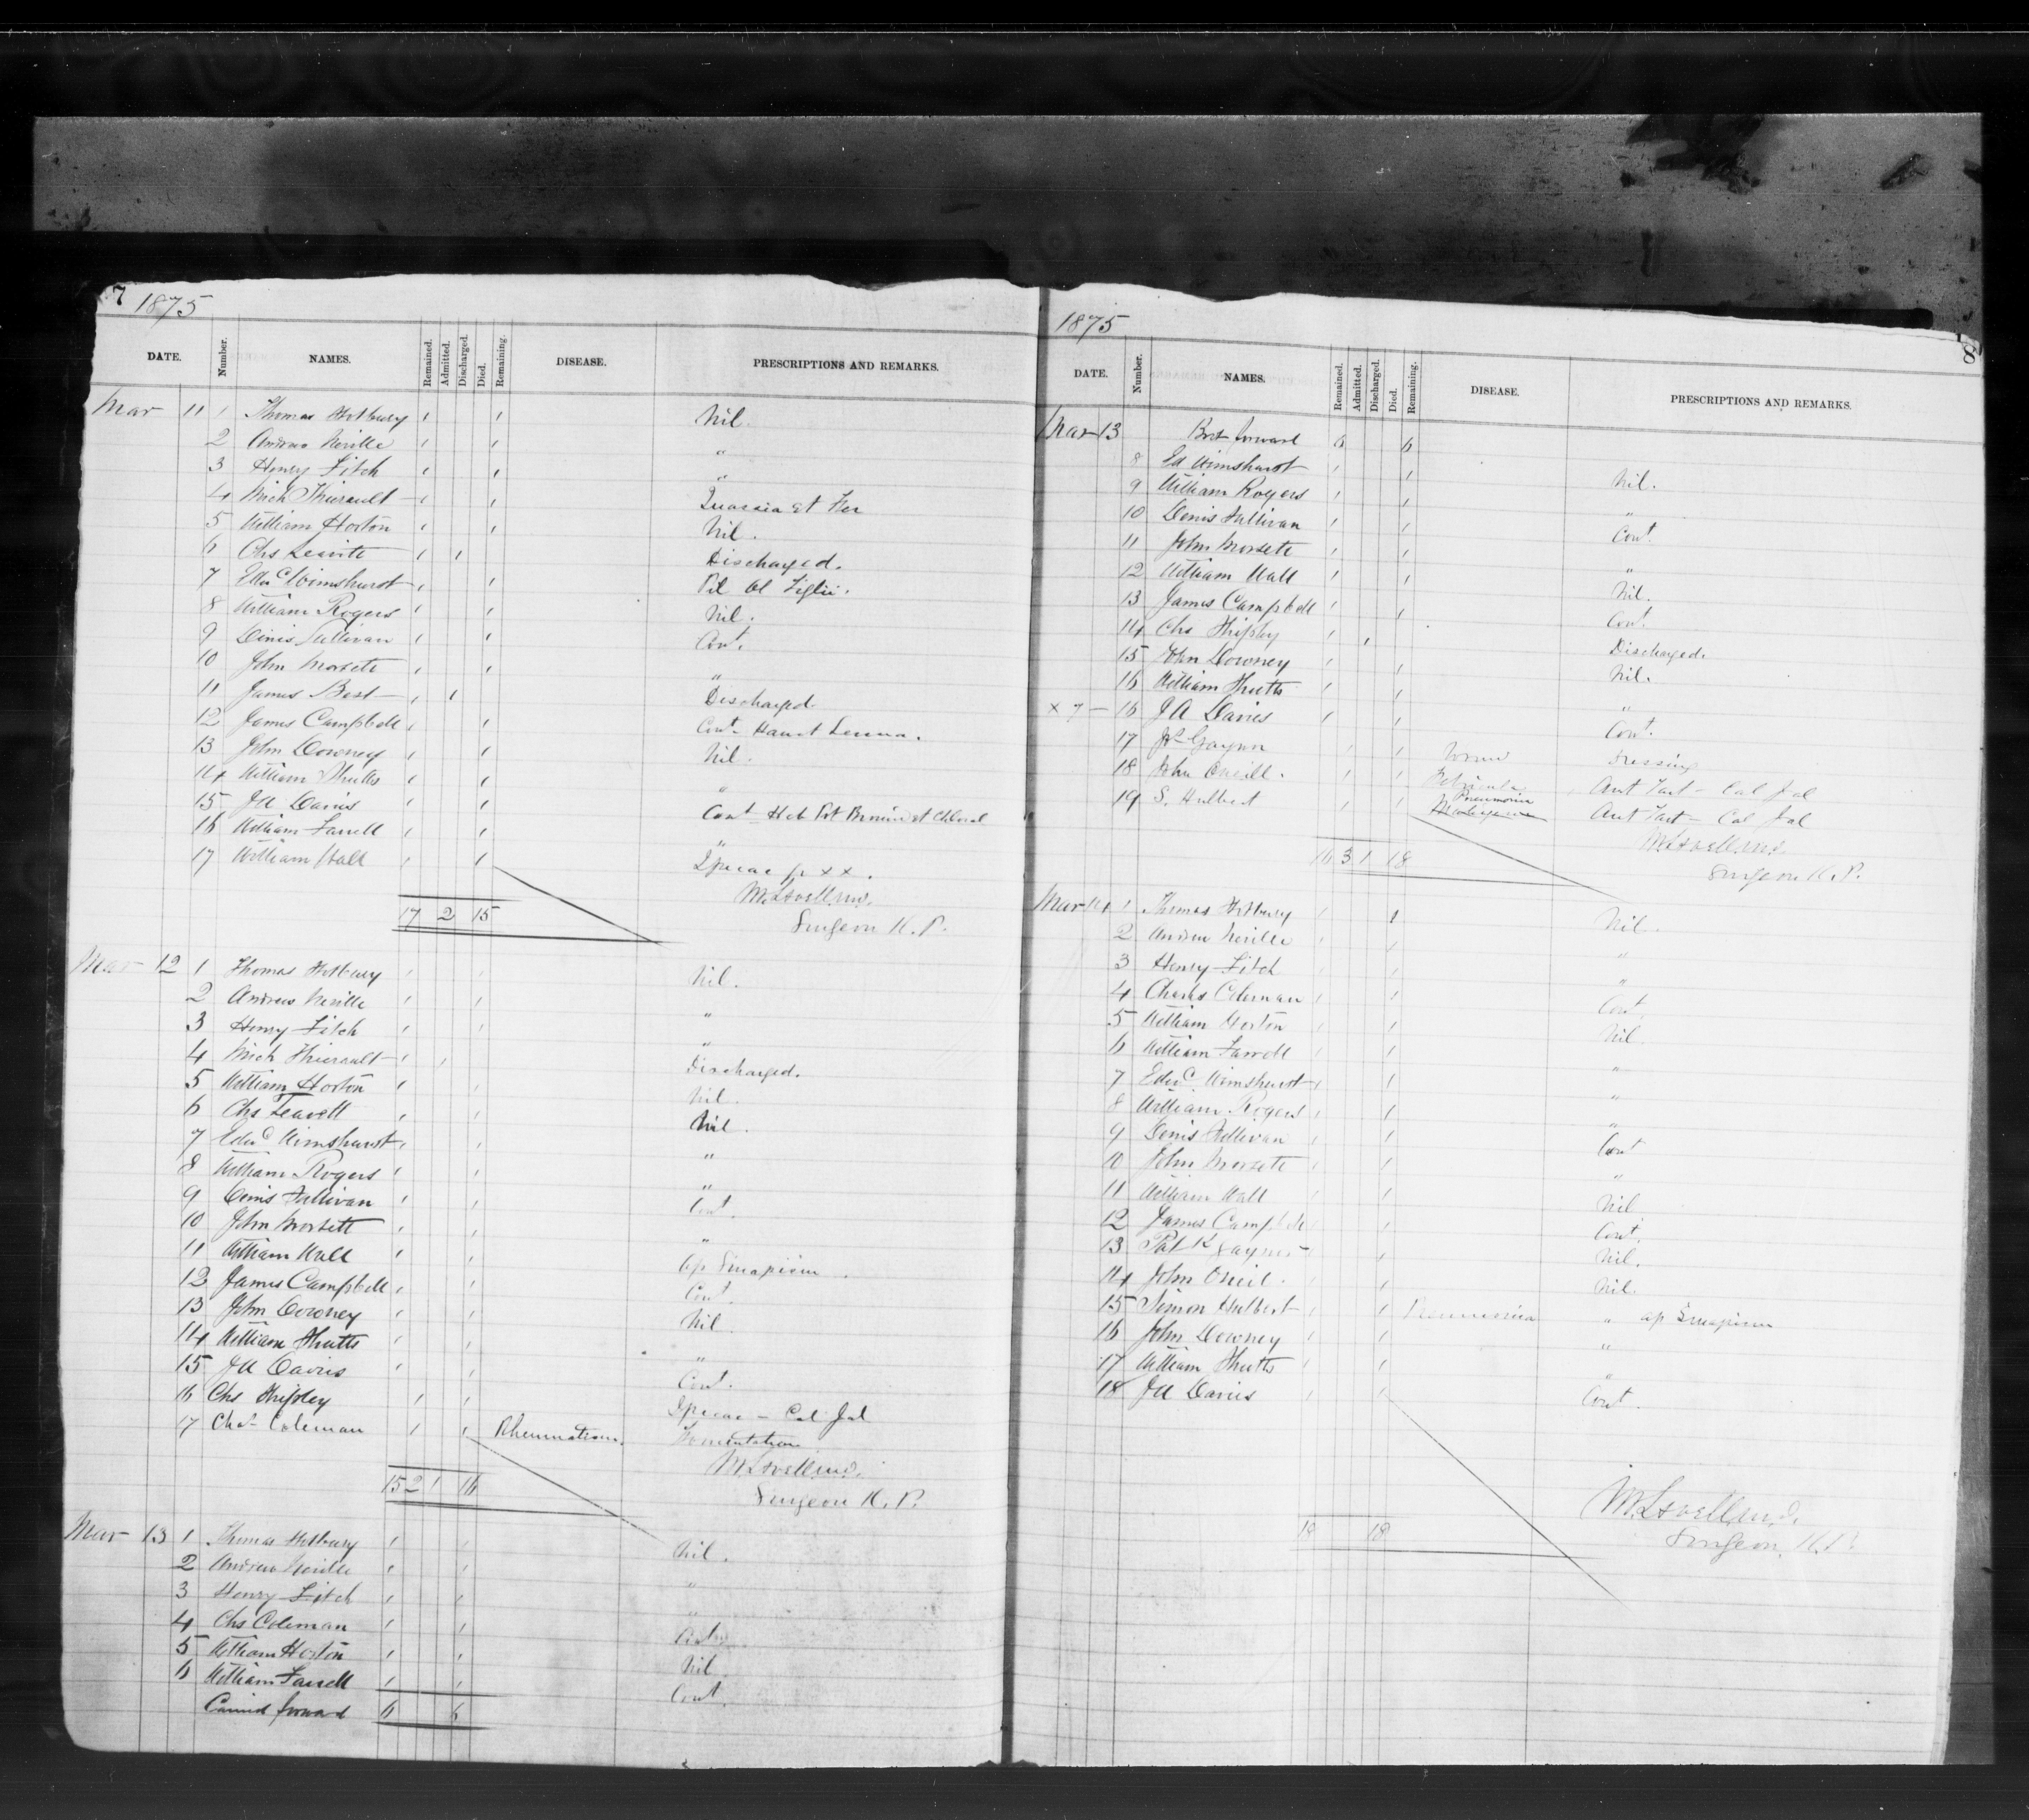 7 1875
DATE. Number. NAMES. Remained. Admitted. Discharged. Died. Remaining. DISEASE. PRESCRIPTIONS AND REMARKS.
Mar 11 1 Thomas 1 1 Nil.
2 Andrew Neville 1 1 "
3 Henry Fitch 1 1 "
4 Mich Thierault 1 1 Quassia et Fer
5 William Horton 1 1 Nil.
6 Chs Leavitt 1 1 Discharged.
7 Edwd Wimshurst 1 1 Pil Ol Tiglii.
8 William Rogers 1 1 Nil.
9 Denis Sullivan 1 1 Cont.
10 John Morsett 1 1 "
11 James Best 1 1 Discharged
12 James Campbell 1 1 Cont Haust Senna.
13 John Downey 1 1 Nil.
14 William Shutts 1 1 "
15 JA Davis 1 1 Cont Hab Pot Bromid et Chloral
16 William Farrell 1 1 "
17 William Hall 1 1 Ipecac gr xx.
17 2 15
Surgeon K. P.
Mar 12 1 Thomas 1 1 Nil.
2 Andrew Neville 1 1 "
3 Henry Fitch 1 1 "
4 Mich Thierault 1 1 Discharged.
5 William Horton 1 1 Nil.
6 Chs Leavett 1 1 Nil.
7 Edwd Wimshurst 1 1 "
8 William Rogers 1 1 "
9 Denis Sullivan 1 1 Cont.
10 John Morsett 1 1 "
11 William Hall 1 1 Ap Sinapism.
12 James Campbell 1 1 Cont.
13 John Downey 1 1 Nil.
14 William Shutts 1 1 "
15 JA Davis 1 1 Cont.
16 Chs Shipley 1 1 Ipecac - Cal Jal
17 Chas Coleman 1 1 Rheumatism. Fomentation
15 2 1 16
Surgeon K. P.
Mar 13 1 Thomas 1 1 Nil.
2 Andrew Neville 1 1 "
3 Henry Fitch 1 1 "
4 Chs Coleman 1 1
5 William Horton 1 1 Nil.
6 William Farrell 1 1 Cont.
Carried forward 6 6
1875 8
DATE. Number. NAMES. Remained. Admitted. Discharged. Died. Remaining. DISEASE. PRESCRIPTIONS AND REMARKS.
Mar 13 Brot forward 6 6
8 Ed Wimshurst 1 1 Nil.
9 William Rogers 1 1 "
10 Denis Sullivan 1 1 Cont.
11 John Morsett 1 1 "
12 William Hall 1 1 Nil.
13 James Campbell 1 1 Cont.
14 Chs Shipley 1 1 Discharged.
15 John Downey 1 1 Nil.
16 William Shutts 1 1 "
x 7 - 16 JA Davies 1 1 Cont.
17 1 1 Dressing
18 John Oneill. 1 1 Febricula Ant Tart - Cal Jal
19 S. Hulbert 1 1 Pneumonia Ant Tart - Cal Jal
16 3 1 18
Surgeon K. P.
Mar 14 1 Thomas 1 1 Nil.
2 Andrew Neville 1 1 "
3 Henry Fitch 1 1 "
4 Charles Coleman 1 1 Cont.
5 William Horton 1 1 Nil
6 William Farrell 1 1 "
7 Edwd Wimshurst 1 1 "
8 William Rogers 1 1 "
9 Denis Sullivan 1 1 Cont
10 John Morsett 1 1 "
11 William Hall 1 1 Nil
12 James Campbell 1 1 Cont.
13 Patk Gaynor 1 1 Nil.
14 John Oneil. 1 1 Nil.
15 Simon Hulbert 1 1 Pneumonia " ap Sinapism
16 John Downey 1 1 "
17 William Shutts 1 1 "
18 JA Davies 1 1 Cont.
18 18
Surgeon K. P.